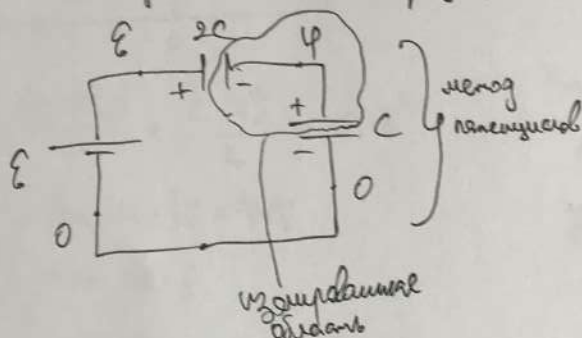 ε 2C φ
+ -
ε
+ C
-
0 0
метод
потенциалов
изолированная
область